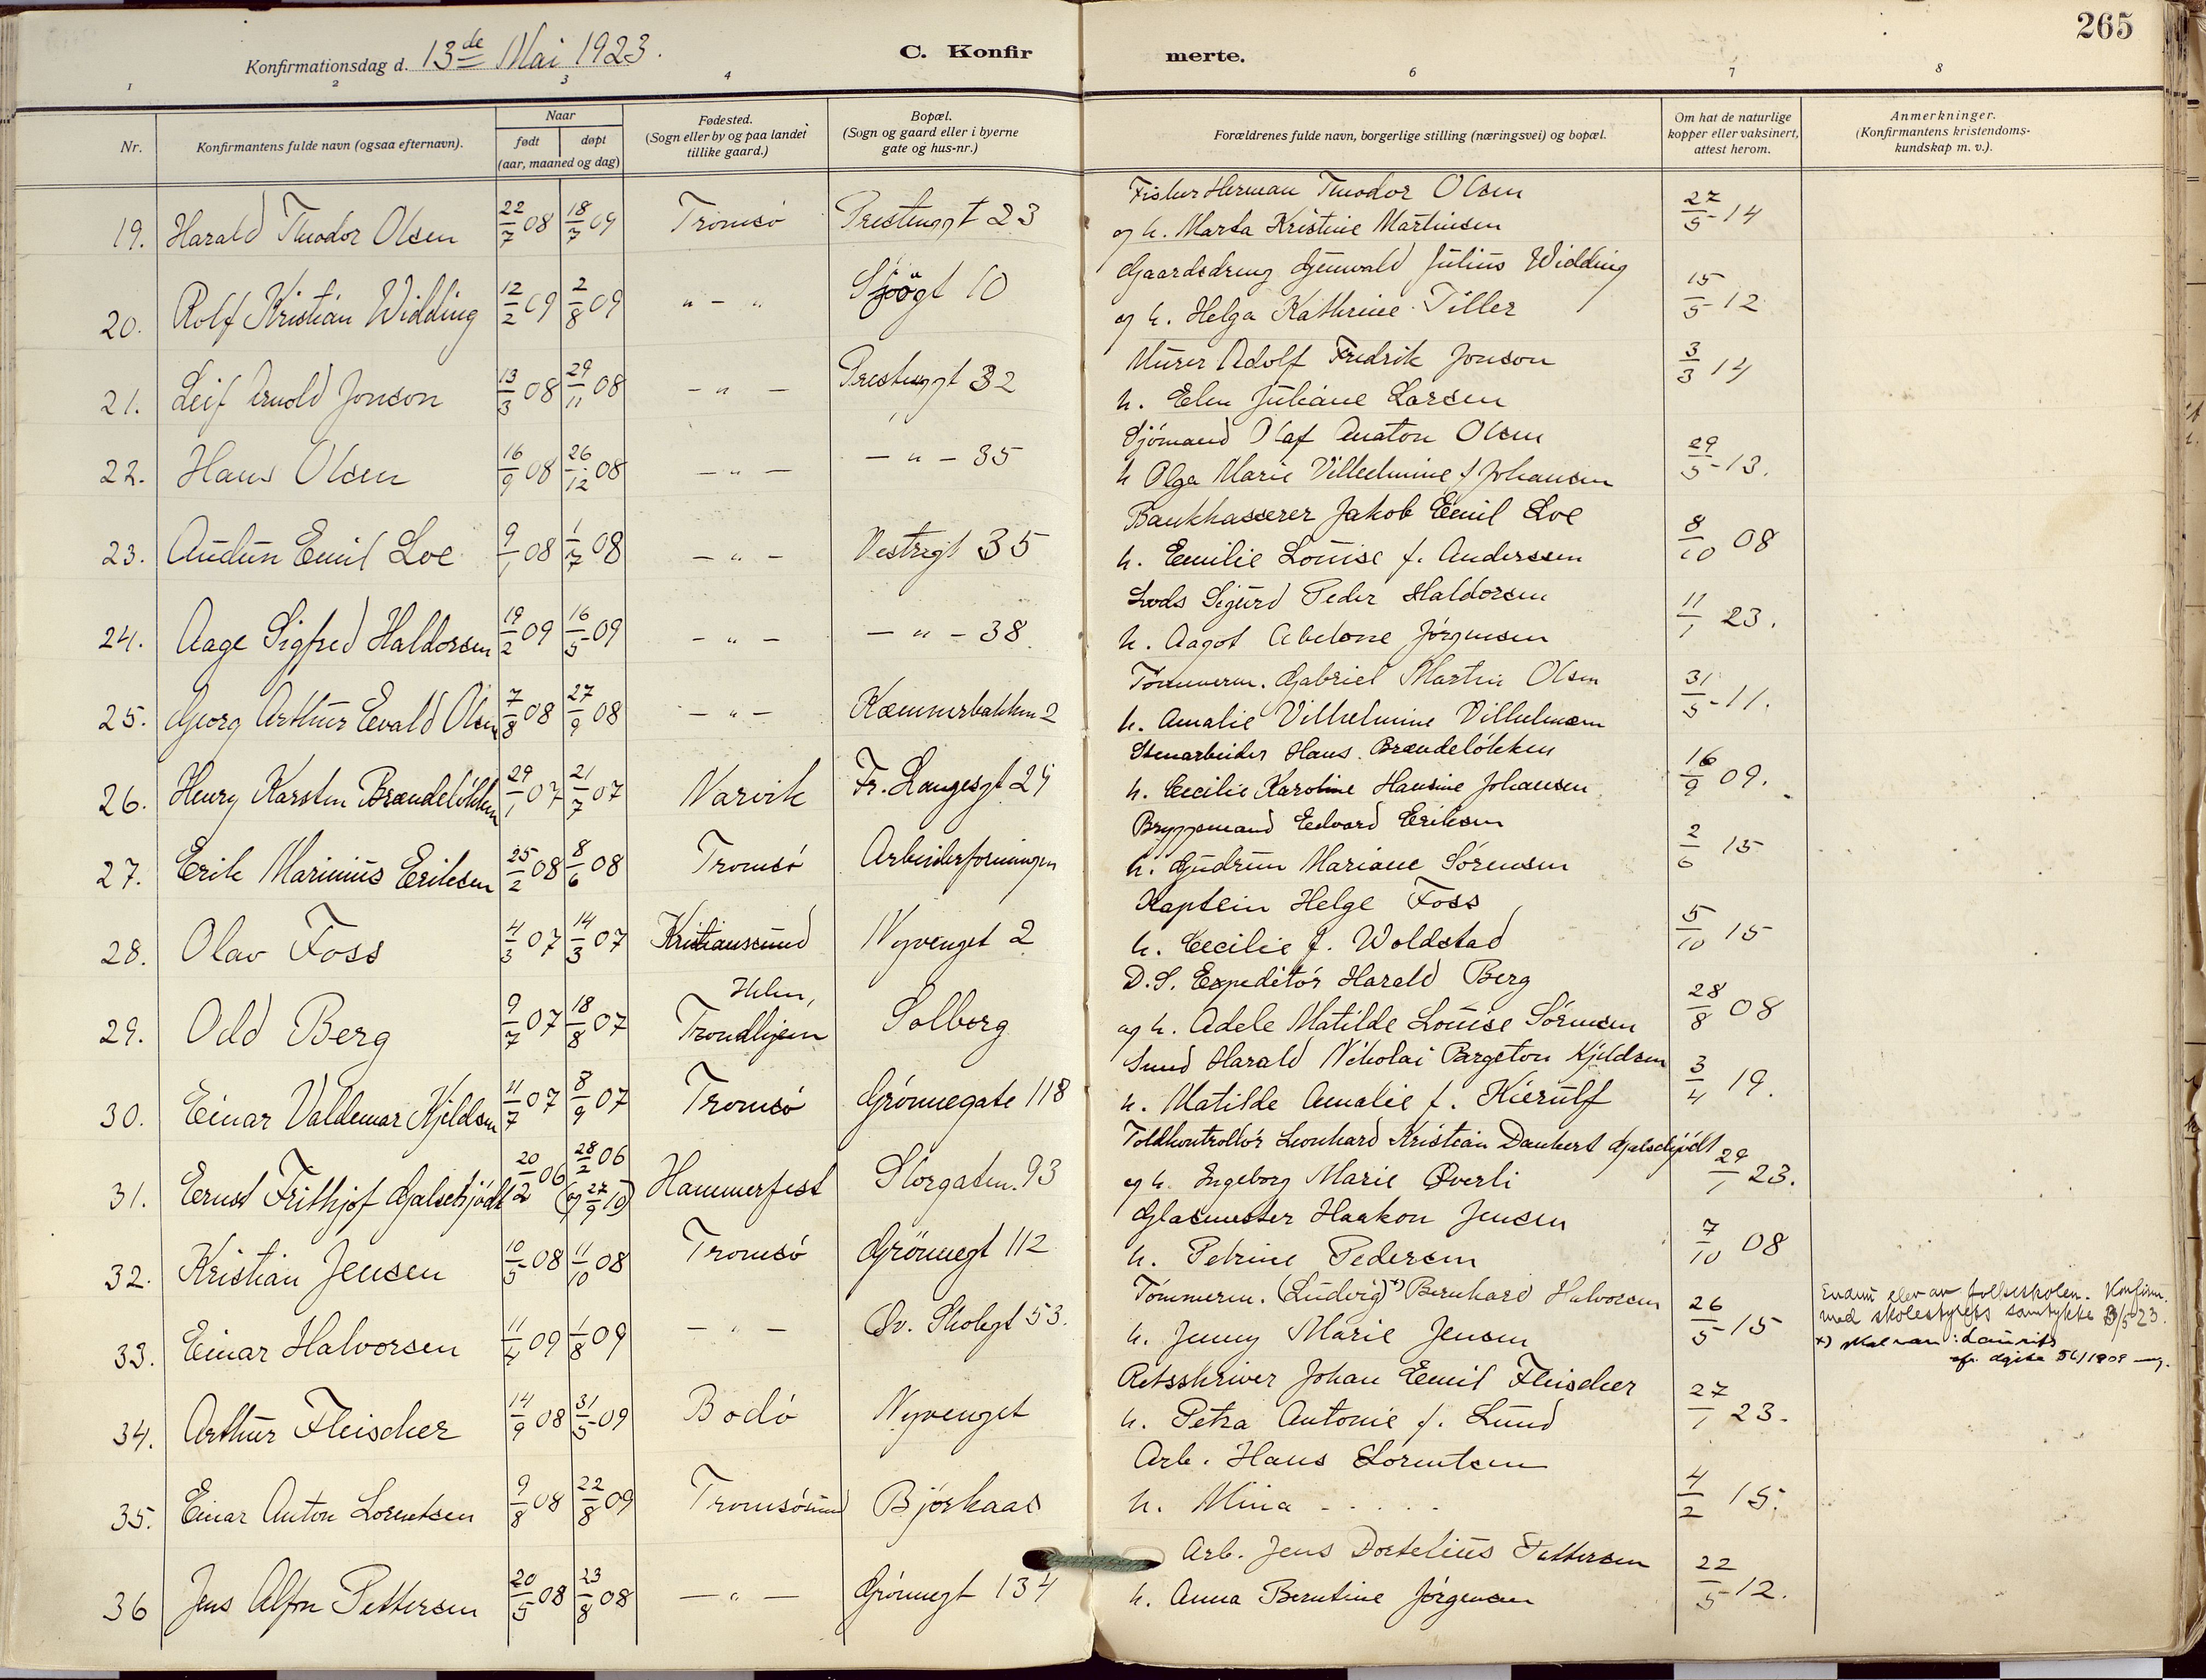 265
Konfirmationsdag d. 13de Mai 1923.
C. Konfirmerte.
1 2 3 4 6 7 8
Nr.
Konfirmantens fulde navn (ogsaa efternavn).
Naar
født
døpt
(aar, maaned og dag)
Fødested.
(Sogn eller by og paa landet
tillike gaard.)
Bopæl.
(Sogn og gaard eller i byerne
gate og hus-nr.)
Forældrenes fulde navn, borgerlige stilling (næringsvei) og bopæl.
Om hat de naturlige
kopper eller vaksinert,
attest herom.
Anmerkninger.
(Konfirmantens kristendoms-
kundskap m. v.).
19. Harald Theodor Olsen 22/7 08 18/7 09 Tromsö Prestenggt 23
Fisker Herman Theodor Olsen
og h. Marta Kristine Martinsen 27/5-14
20. Rolf Kristian Widding 12/2 09 2/8 09 " - " Sjögt 10
Gaardsdreng Gjenvald Julius Widding
og h. Helga Kathrine Tiller 15/5-12
21. Leif Arnold Jonson 13/3 08 29/11 08 - " - Prestenggt 32
Murer Adolf Fredrik Jonson
h. Elen Juliane Larsen 3/3 14
22. Hans Olsen 16/9 08 26/12 08 - " - - " - 35
Sjömand Olaf Anaton Olsen
h Olga Marie Vilhelmine f Johansen 29/5-13.
23. Audun Emil Loe 9/1 08 1/7 08 - " - Vestregt 35
Bankkasserer Jakob Emil Loe
h. Emilie Louise f. Anderssen 8/10 08
24. Aage Sigfred Haldorsen 19/2 09 16/5 09 - " - - " - 38.
Lods Sigurd Peder Haldorsen
h. Aagot Abelone Jörgensen 11/1 23.
25. Georg Arthur Evald Olsen 7/8 08 27/9 08 - " - Kæmnerbakken 2
Tömmerm. Gabriel Martin Olsen
h. Amalie Vilhelmine Vilhelmsen 31/5-11.
26. Henry Karsten Brændelökken 29/1 07 21/7 07 Narvik Fr. Langesgt 24
Stenarbeider Hans Brændelökken
h. Cecilie Karoline Hansine Johansen 16/9 09.
27. Erik Marinius Eriksen 25/2 08 8/6 08 Tromsö Arbeiderforeningen
Bryggemand Edvard Eriksen
h. Gudrun Mariane Sörensen 2/6 15
28. Olav Foss 4/3 07 14/3 07 Kristianssund Nyvenget 2
Kaptein Helge Foss
h. Cecilie f. Woldstad 5/10 15
29. Odd Berg 9/7 07 18/8 07 Trondhjem Solborg
D.S. Expeditör Harald Berg
og h. Adele Matilde Louise Sörensen 28/8 08
30. Einar Valdemar Kjeldsen 11/7 07 8/9 07 Tromsö Grönnegate 118
Harald Nikolai Kjeldsen
h. Matilde Amalie f. Kierulf 3/4 19.
31. Ernst Frithjof Galschjödt 20/2 06 28/2 06 (og 27/9 10) Hammerfest Storgaten. 93
Toldkontrollör Leonhard Kristian Dankert Galschjödt
og h. Ingeborg Marie Øverli 29/1 23.
32. Kristian Jensen 10/5 08 11/10 08 Tromsö Grönnegt 112
Glasmester Haakon Jensen
h. Petrine Pedersen 7/10 08
33. Einar Halvorsen 11/4 09 1/8 09 - " - Øv. Skolegt 53.
Tömmerm. (Ludvig)x) Bernhard Halvorsen
h. Jenny Marie Jensen 26/5-15
Endnu elev av folkeskolen. Konfirm.
med skolestyrets samtykke 3/5-23.
x) skal være: Laurits
34. Arthur Fleischer 14/9 08 31/5 09 Bodö Nyvenget
Retsskriver Johan Emil Fleischer
h. Petra Antonie f. Lund 27/1 23.
35. Einar Anton Lorentsen 9/8 08 22/8 09 Tromsösund Bjørkaas
Arb. Hans Lorentsen
h. Mina - - - - - 4/2 15.
36 Jens Alfon Pettersen 20/5 08 23/8 08 - " - Grönnegt 134
Arb. Jens Dortelius Pettersen
h. Anna Berntine Jörgensen 22/5-12.